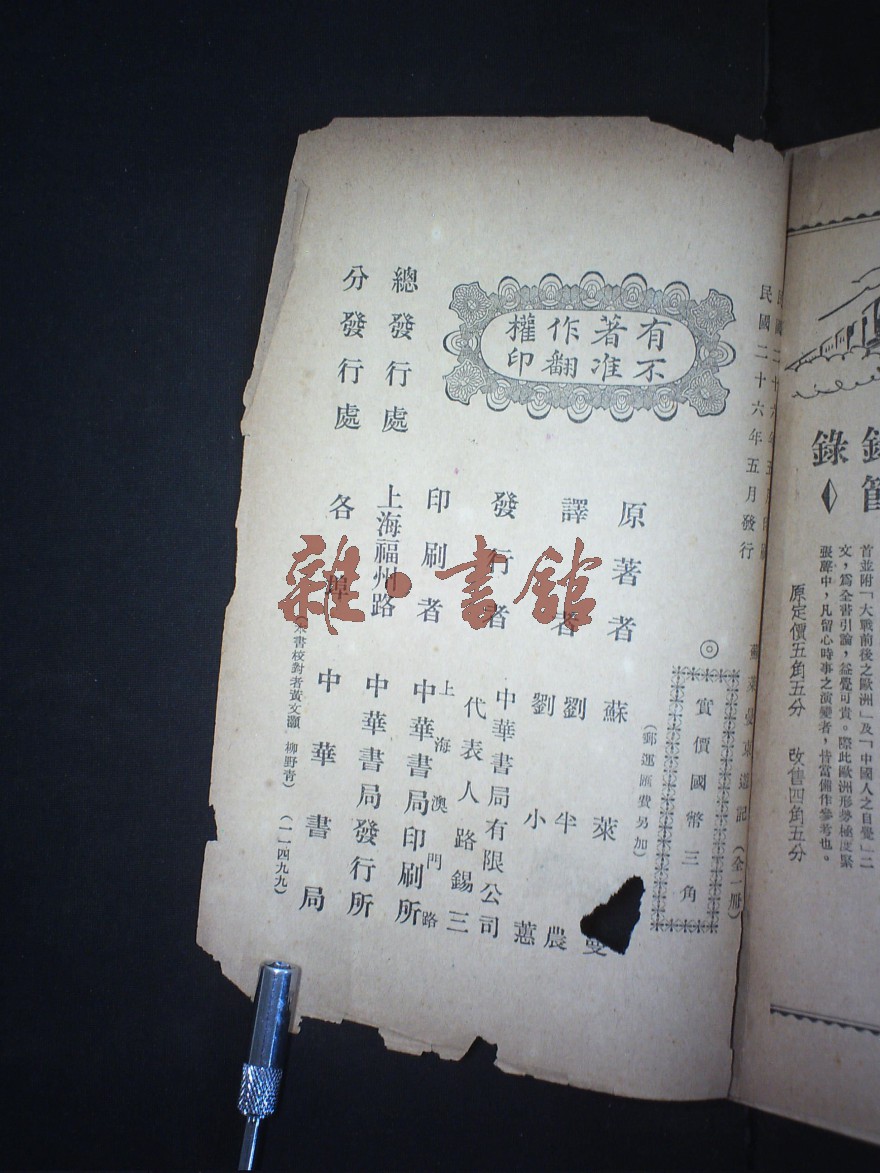 錄
首並附「大戰前後之歐洲」及「中國人之自覺」二
文，為全書引論，益覺可貴。際此歐洲形勢極度緊
張聲中，凡留心時事之演變者，皆當備作參考也。
原定價五角五分 改售四角五分
民國二十六年五月印刷
民國二十六年五月發行
蘇萊曼東遊記（全一冊）
◎實價國幣三角
（郵運匯費另加）
有著作權
不准翻印
原著者 蘇萊曼
譯者 劉半農
劉小蕙
發行者 中華書局有限公司
代表人路錫三
印刷者 上海澳門路
中華書局印刷所
總發行處 上海福州路 中華書局發行所
分發行處 各埠 中華書局
（本書校對者黃文灝 柳野青）（一一四九九）
雜·書館